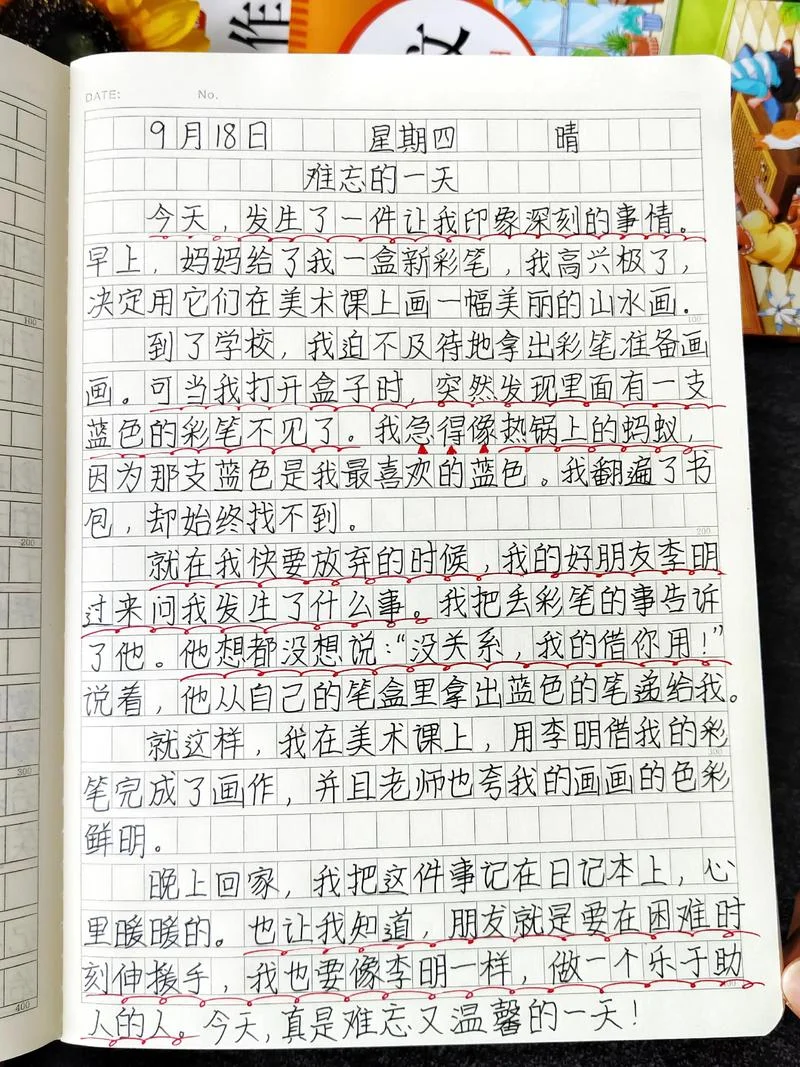 作
文
DATE:
No.
9月18日 星期四 晴
难忘的一天
今天，发生了一件让我印象深刻的事情。
早上，妈妈给了我一盒新彩笔，我高兴极了，
决定用它们在美术课上画一幅美丽的山水画.
到了学校，我迫不及待地拿出彩笔准备画
画。可当我打开盒子时，突然发现里面有一支
蓝色的彩笔不见了。我急得像热锅上的蚂蚁，
因为那支蓝色是我最喜欢的蓝色。我翻遍了书
包，却始终找不到。
就在我快要放弃的时候，我的好朋友李明
过来问我发生了什么事。我把丢彩笔的事告诉
了他。他想都没想说：“没关系，我的借你用！”
说着，他从自己的笔盒里拿出蓝色的笔递给我。
就这样，我在美术课上，用李明借我的彩
笔完成了画作，并且老师也夸我的画画的色彩
鲜明。
晚上回家，我把这件事记在日记本上，心
里暖暖的。也让我知道，朋友就是要在困难时
刻伸援手，我也要像李明一样，做一个乐于助
人的人。今天，真是难忘又温馨的一天！
100
200
300
400
100
200
300